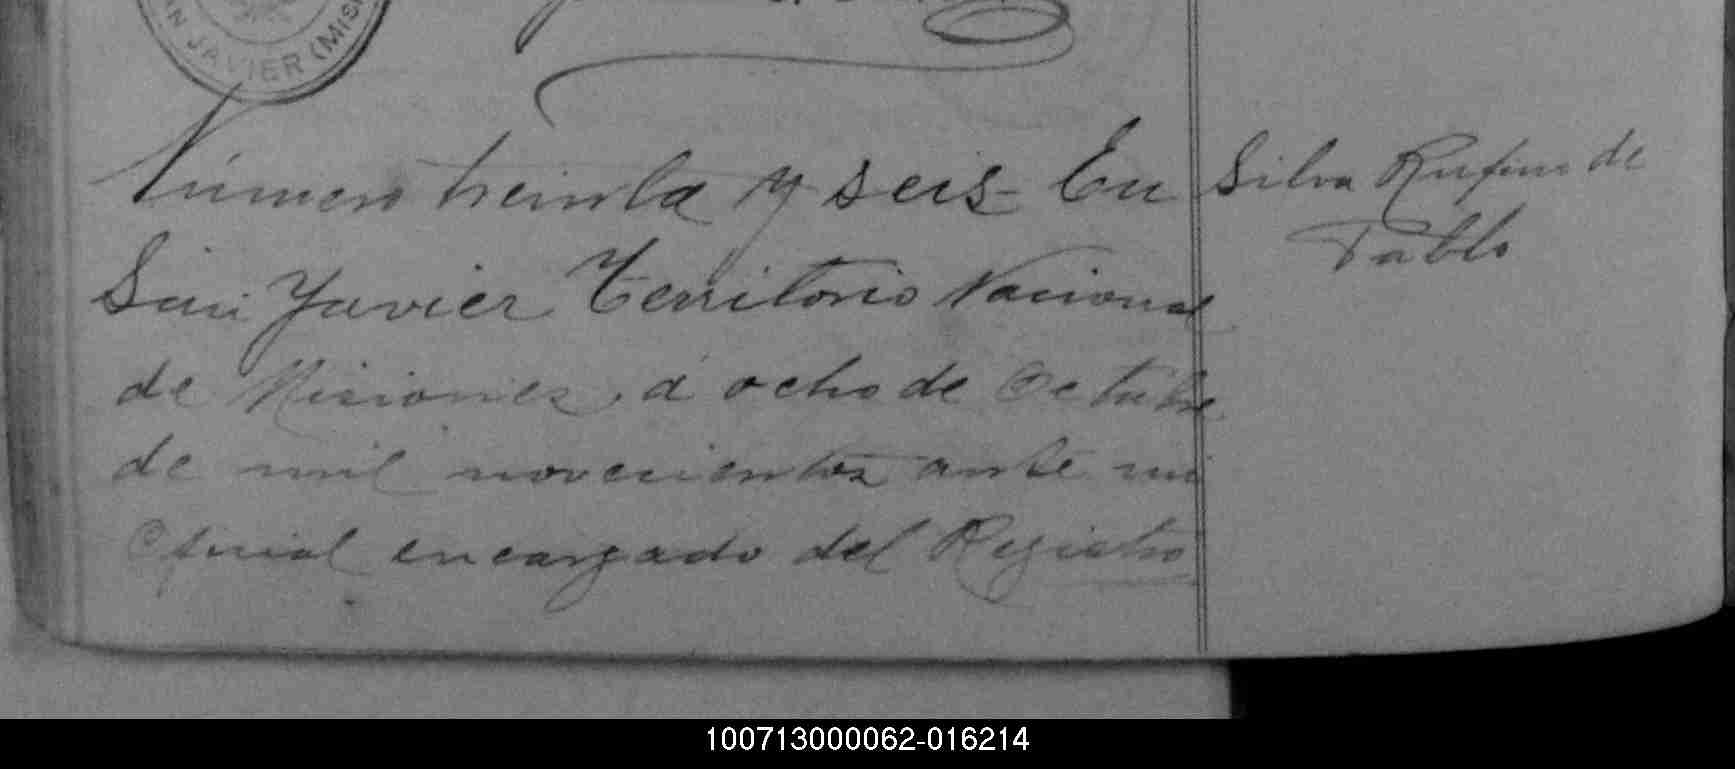 AN JAVIER (MIS
Número treinta y seis - En
San Javier Territorio Nacional
de Misiones, á ocho de Octubre
de mil novecientos ante mi
Oficial encargado del Registro
Silva Rufino de
Pablo
100713000062-016214